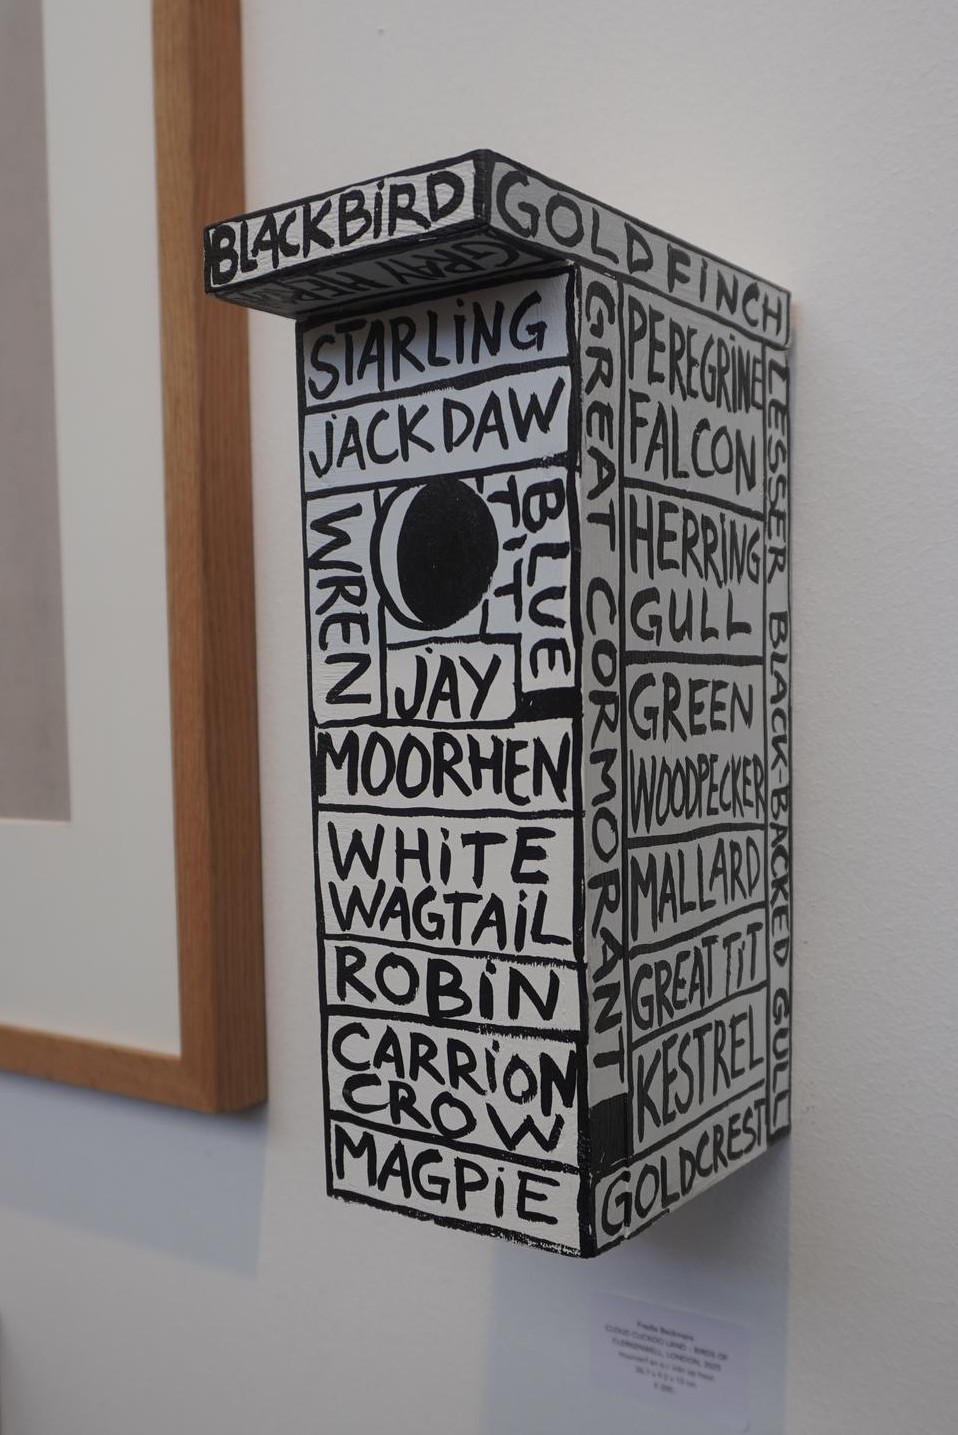 BLACKBiRD
GOLDFiNCH
GRAY HERON
STARLiNG
JACKDAW
WREN
BLUE
TiT
JAY
MOORHEN
WHiTE
WAGTAiL
ROBiN
CARRiON
CROW
MAGPiE
GREAT CORMORANT
PEREGRiNE
FALCON
HERRiNG
GULL
GREEN
WOODPECKER
MALLARD
GREAT TiT
KESTREL
GOLDCREST
LESSER BLACK-BACKED GULL
CLOUD CUCKOO LAND - BIRDS OF
CLERKENWELL, LONDON, 2025